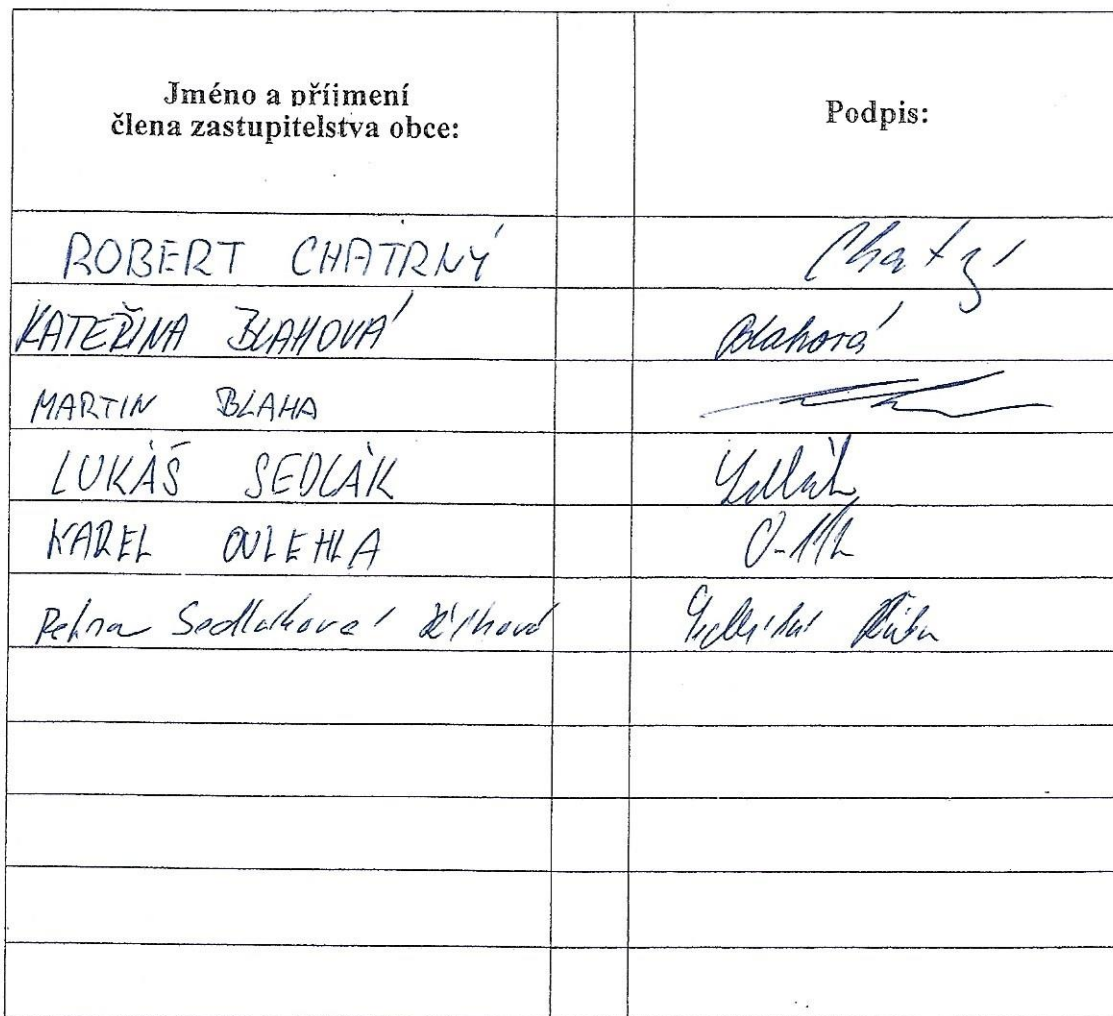 Jméno a příjmení
člena zastupitelstva obce:
Podpis:
ROBERT CHATRNÝ
KATEŘINA BLAHOVÁ Blahová
MARTIN BLAHA
LUKÁŠ SEDLÁK Sedlák
KAREL OULEHLA
Petra Sedláková